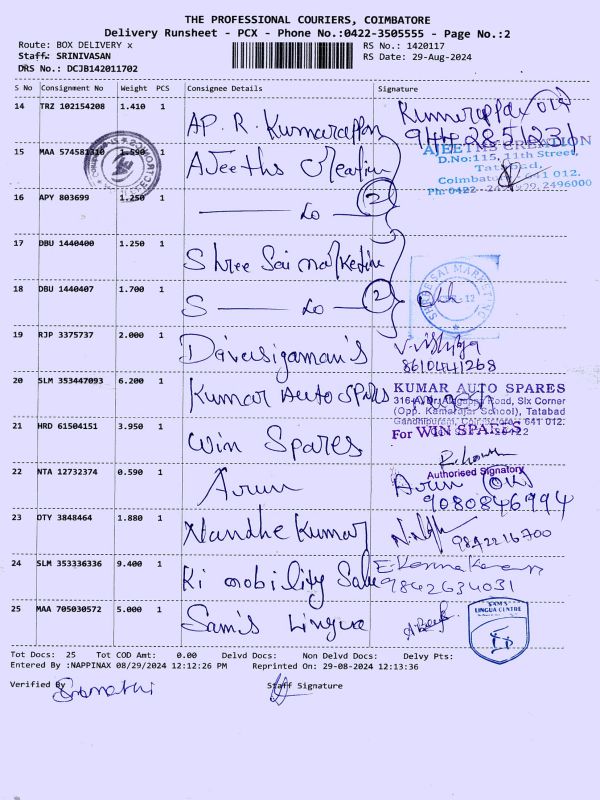 THE PROFESSIONAL COURIERS, COIMBATORE
Delivery Runsheet - PCX - Phone No.:0422-3505555 - Page No.:2
Route: BOX DELIVERY x
RS No.: 1420117
Staff: SRINIVASAN
RS Date: 29-Aug-2024
DRS No.: DCJB142011702
S No Consignment No Weight PCS Consignee Details Signature
14 TRZ 102154208 1.410 1 AP. R. Kumarappan Kumarappan
9442851231
15 1 Ajeeths Creation AJEETHS CREATION
D.No:115, 11th Street,
Tatabad,
Coimbatore 641 012.
Ph: 0422
16 APY 803699 1.250 1 Do 2
17 DBU 1440400 1.250 1 Shree Sai marketing SHREE SAI MARKETING
18 DBU 1440407 1.700 1 S Do 2
19 RJP 3375737 2.000 1 Daivasigamani's
8610441268
20 SLM 353447093 6.200 1 Kumar Auto SPARES KUMAR AUTO SPARES
Road, Six Corner
(Opp. Kamarajar School), Tatabad
Gandhipuram, Coimbatore - 641 012.
21 HRD 61504151 3.950 1 Win Spares For WIN SPARES
Authorised Signatory
22 NTA 12732374 0.590 1 Arun Arun
9080846994
23 DTY 3848464 1.880 1 Nandhe Kumar 9842216700
24 SLM 353336336 9.400 1 Ki mobility Sale
9842634031
25 MAA 705030572 5.000 1 Sam's Lingua SAM'S
LINGUA CENTRE
Tot Docs: 25 Tot COD Amt: 0.00 Delvd Docs: Non Delvd Docs: Delvy Pts:
Entered By :NAPPINAX 08/29/2024 12:12:26 PM Reprinted On: 29-08-2024 12:13:36
Verified By Staff Signature